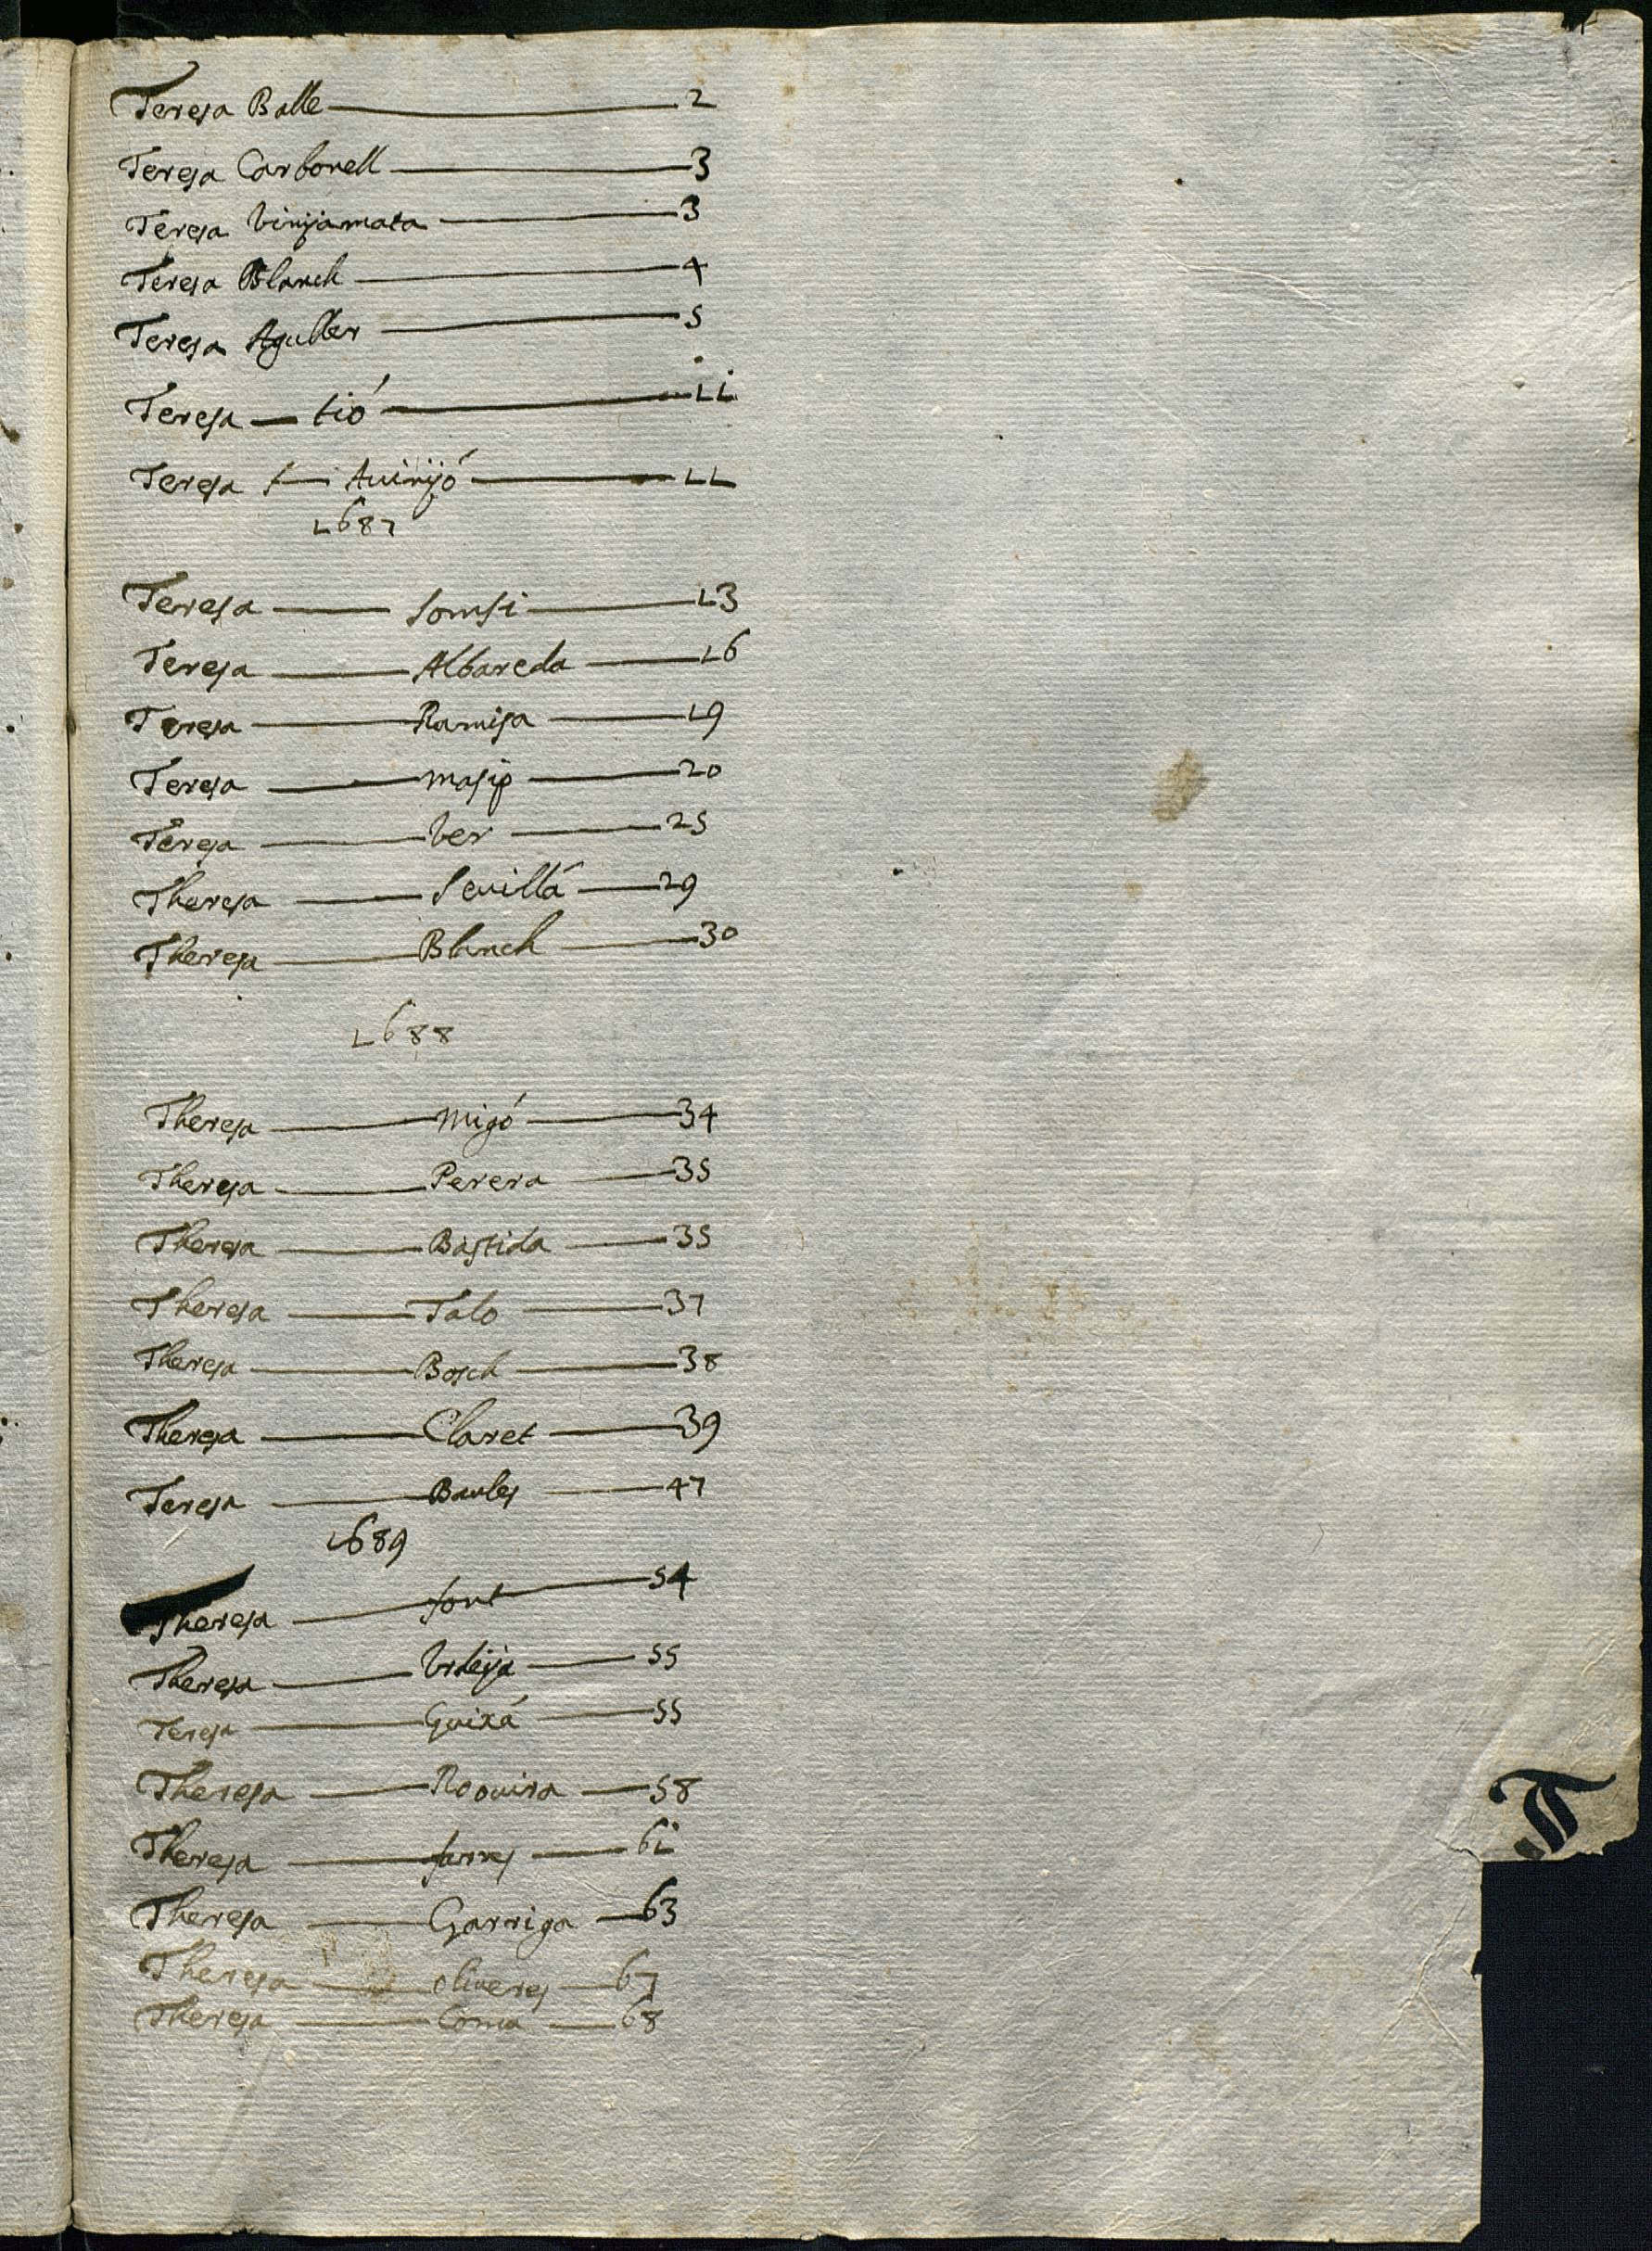 Teresa Balle — 2
Teresa Carbonell — 3
Teresa Vinyamata — 3
Teresa Blanch — 4
Teresa Aguller — 5
Teresa — tió — 11
Teresa — Auinyó — 11
1687
Teresa — Somsi — 13
Teresa — Albareda — 16
Teresa — Ramisa — 19
Teresa — masip — 20
Teresa — Ver — 25
Theresa — Seuillá — 29
Theresa — Blanch — 30
1688
Theresa — migó — 34
Theresa — Perera — 35
Theresa — Bastida — 35
Theresa — Talo — 37
Theresa — Bosch — 38
Theresa — Claret — 39
Teresa — Baules — 47
1689
Theresa — font — 54
Theresa — 55
Teresa — Guixá — 55
Theresa — Roouira — 58
Theresa — farres — 61
Theresa — Garriga — 63
Theresa — oliueres — 67
Theresa — Coma — 68
T